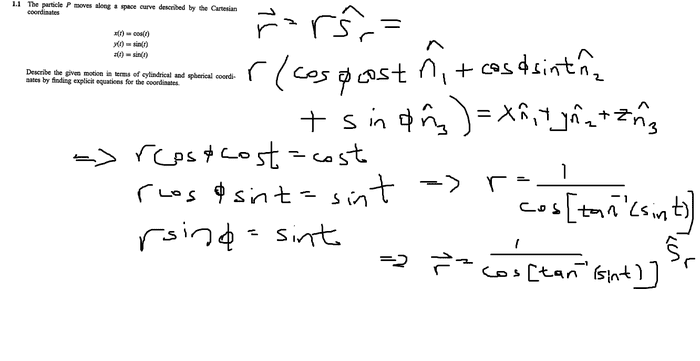 1.1 The particle P moves along a space curve described by the Cartesian
coordinates
x(t) = cos(t)
y(t) = sin(t)
z(t) = sin(t)
Describe the given motion in terms of cylindrical and spherical coordi-
nates by finding explicit equations for the coordinates.
r⃗ = r ŝᵣ =
r (cos ϕ cos t n̂₁ + cos ϕ sin t n̂₂
+ sin ϕ n̂₃) = x n̂₁ + y n̂₂ + z n̂₃
=> r cos ϕ cos t = cos t
r cos ϕ sin t = sin t => r = 1 / cos[tan⁻¹(sin t)]
r sin ϕ = sin t
=> r⃗ = 1 / cos[tan⁻¹(sin t)] ŝᵣ